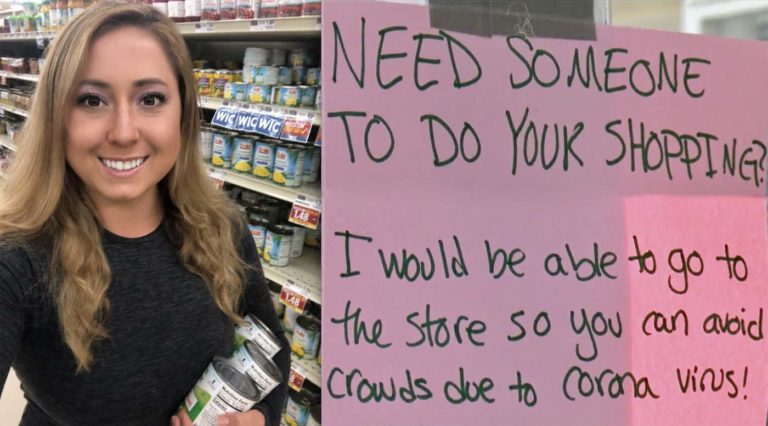 WIC
WIC WIC WIC
1.48
1.48
NEED SOMEONE
TO DO YOUR SHOPPING?
I would be able to go to
the store so you can avoid
crowds due to corona virus!